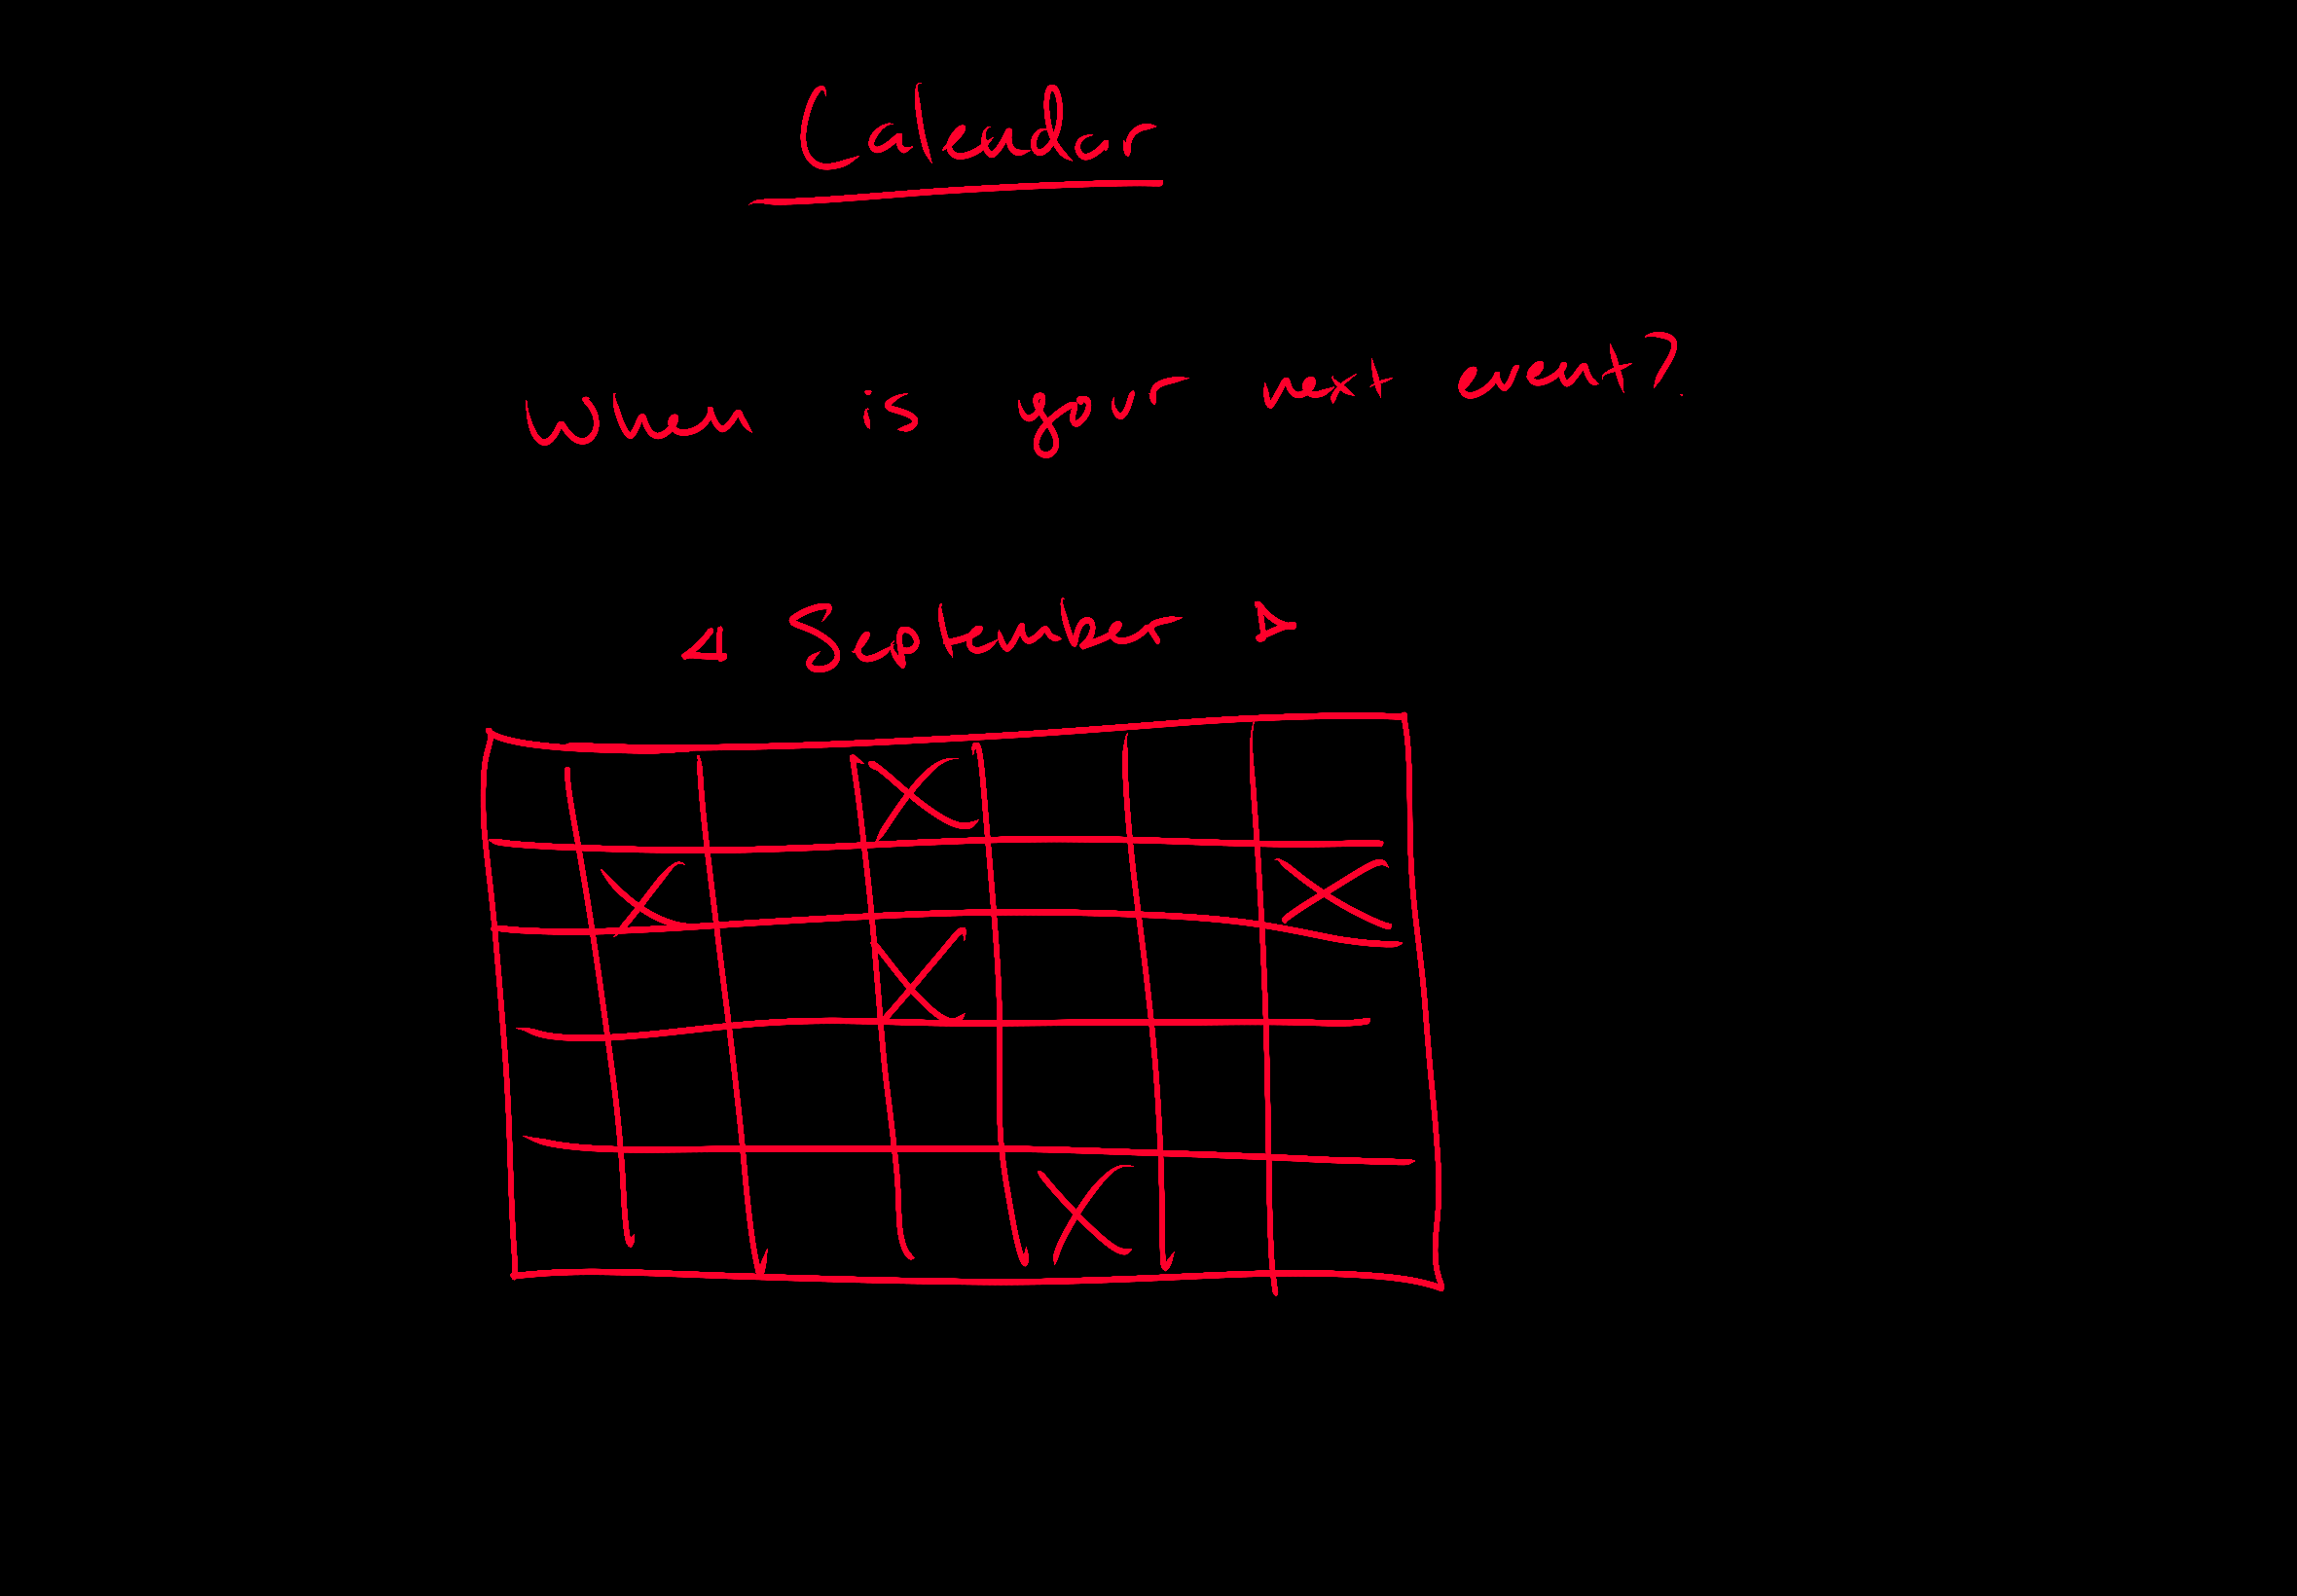 Calendar
When is your next event?
September